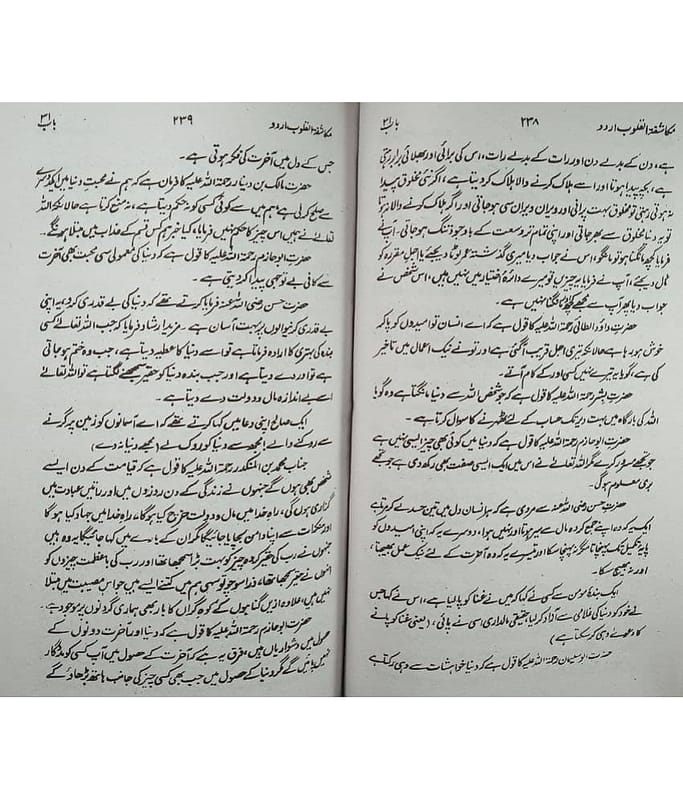 مکاشفۃ القلوب اردو ۲۳۸ باب ۳۱
ہے، دن کے بدلے دن اور رات کے بدلے رات، اس کی برائی اور بھلائی برابر رہتی
ہے، بچہ پیدا ہوتا اور اسے ہلاک کرنے والا ہلاک کر دیتا ہے، اگر نئی مخلوق پیدا
نہ ہوتی رہتی تو مخلوق بہت پرانی اور ویران ویران سی ہو جاتی اور اگر ہلاک کرنے والا نہ ہوتا
تو یہ دنیا مخلوق سے بھر جاتی اور اپنی تمام تر وسعت کے باوجود تنگ ہو جاتی، آپ نے
فرمایا کچھ مانگنا ہو تو مانگو، اس نے جواب دیا میری گذشتہ عمر لوٹا دیجئے یا اجل مقررہ کو
ٹال دیجئے، آپ نے فرمایا یہ چیزیں تو میرے دائرۂ اختیار میں نہیں ہیں، اس شخص نے
جواب دیا پھر آپ سے مجھے کچھ مانگنا نہیں ہے۔
حضرت داؤد الطائی رحمۃ اللہ علیہ کا قول ہے کہ اے انسان تو امیدوں کو پا کر
خوش ہو رہا ہے حالانکہ تیری اجل قریب آ گئی ہے اور تو نے نیک اعمال میں تاخیر
کی ہے، گویا یہ تیرے نہیں کسی اور کے کام آتے۔
حضرت بشر رحمۃ اللہ علیہ کا قول ہے کہ جو شخص اللہ سے دنیا مانگتا ہے وہ گویا
اللہ کی بارگاہ میں بہت دیر تک حساب کے لئے ٹھہرنے کا سوال کرتا ہے۔
حضرت ابو حازم رحمۃ اللہ علیہ کا قول ہے کہ دنیا میں کوئی بھی چیز ایسی نہیں ہے
جو تجھے مسرور کرے مگر اللہ تعالٰے نے اس میں ایک ایسی صفت بھی رکھ دی ہے جو تجھے
بری معلوم ہوگی۔
حضرت حسن رضی اللہ عنہ سے مروی ہے کہ ہر انسان دل میں تین حسدیں لے کر مرتا ہے
ایک یہ کہ وہ اپنے جمع کردہ مال سے سیر ہوتا اور نہیں ہوا، دوسرے یہ کہ اپنی امیدوں کو
پایۂ تکمیل تک پہنچاتا مگر نہ پہنچا سکا اور تیسرے یہ کہ وہ آخرت کے لئے نیک عمل بھیجتا
اور نہ بھیج سکا۔
ایک بندۂ مؤمن سے کسی نے کہا کہ میں نے غنا کو پا لیا ہے، اس نے کہا جس
نے خود کو دنیا کی غلامی سے آزاد کر لیا حقیقی مالداری اسی نے پائی، (یعنی غنا کو پانے
کا دعوے وہی کر سکتا ہے)
حضرت ابو سلیمان رحمۃ اللہ علیہ کا قول ہے کہ دنیا خواہشات سے وہی رکتا ہے
مکاشفۃ القلوب اردو ۲۳۹ باب ۳۱
جس کے دل میں آخرت کی فکر ہوتی ہے۔
حضرت مالک بن دینار رحمۃ اللہ علیہ کا فرمان ہے کہ ہم نے محبت دنیا میں ایک دوسرے
سے صلح کر لی ہے، ہم میں سے کوئی کسی کو نہ حکم دیتا ہے، نہ منع کرتا ہے حالانکہ اللہ
تعالٰے نے ہمیں اس چیز کا حکم نہیں فرمایا، کیا خبر ہم کس قسم کے عذاب میں مبتلا ہوں گے۔
حضرت ابو حازم رحمۃ اللہ علیہ کا قول ہے کہ دنیا کی معمولی سی محبت بھی آخرت
سے کافی بے توجہی پیدا کر دیتی ہے۔
حضرت حسن رضی اللہ عنہ فرمایا کرتے تھے کہ دنیا کی بے قدری کرو یہ اپنی
بے قدری کرنیوالوں پر بہت آسان ہے۔ مزید ارشاد فرمایا کہ جب اللہ تعالٰے کسی
بندہ کی بہتری کا ارادہ فرماتا ہے تو اسے دنیا کا عطیہ دیتا ہے، جب وہ ختم ہو جاتی
ہے تو اور دے دیتا ہے اور جب بندہ دنیا کو حقیر سمجھنے لگتا ہے تو اللہ تعالٰے
اسے بے اندازہ مال و دولت دے دیتا ہے۔
ایک صالح اپنی دعا میں کہا کرتے تھے کہ اے آسمانوں کو زمین پر گرنے
سے روکنے والے! مجھ سے دنیا کو روک لے (مجھے دنیا نہ دے)
جناب محمد بن المنکدر رحمۃ اللہ علیہ کا قول ہے کہ قیامت کے دن ایسے
شخص بھی ہوں گے جنہوں نے زندگی کے دن روزوں میں اور راتیں عبادت میں
گزاری ہوں گی، راہ خدا میں مال و دولت خرچ کیا ہوگا، راہ خدا میں جہاد کیا ہوگا
اور منکرات سے اپنا دامن بچایا ہوگا مگر ان کے بارے میں کہا جائیگا یہ وہ ہیں
جنہوں نے رب کی حقیر کردہ چیز کو بہت بڑا سمجھا تھا اور رب کی باعظمت چیزوں کو
انہوں نے حقیر سمجھا تھا، ذرا سوچو تو سہی ہم میں کتنے ایسے ہیں جو اس مصیبت میں مبتلا
نہیں ہیں، علاوہ ازیں گناہوں کے کوہ گراں کا بار بھی ہماری گردنوں پر موجود ہے۔
حضرت ابو حازم رحمۃ اللہ علیہ کا قول ہے کہ دنیا اور آخرت دونوں کے
حصول میں دشواریاں ہیں، فرق یہ ہے کہ آخرت کے حصول میں آپ کسی کو مددگار
نہیں پائیں گے مگر دنیا کے حصول میں جب بھی کسی چیز کی جانب ہاتھ بڑھاؤ گے